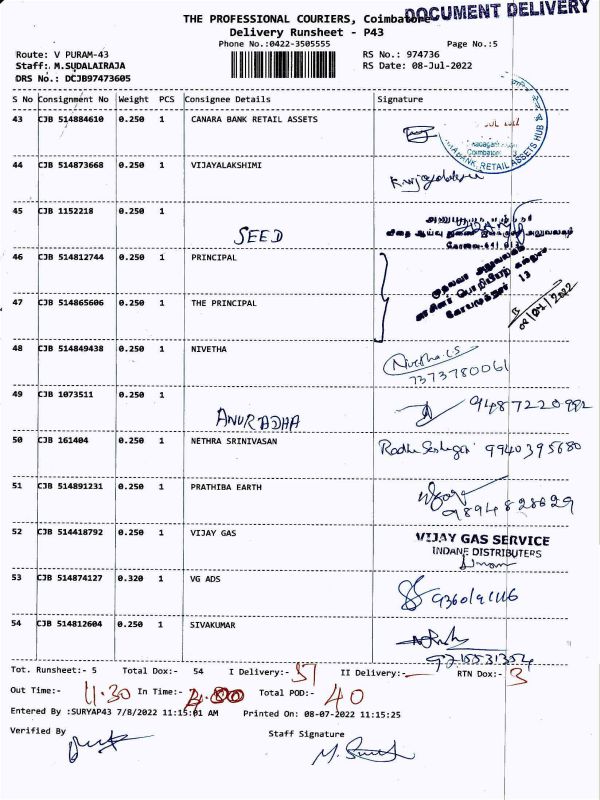 DOCUMENT DELIVERY
THE PROFESSIONAL COURIERS, Coimbatore
Delivery Runsheet - P43
Phone No.:0422-3505555
Page No.:5
Route: V PURAM-43
RS No.: 974736
Staff: M.SUDALAIRAJA
RS Date: 08-Jul-2022
DRS No.: DCJB97473605
S No Consignment No Weight PCS Consignee Details Signature
43 CJB 514884610 0.250 1 CANARA BANK RETAIL ASSETS
RETAIL ASSETS HUB
44 CJB 514873668 0.250 1 VIJAYALAKSHIMI
45 CJB 1152218 0.250 1
SEED
46 CJB 514812744 0.250 1 PRINCIPAL
47 CJB 514865606 0.250 1 THE PRINCIPAL
48 CJB 514849438 0.250 1 NIVETHA
Nivetha.C.S
7373780061
49 CJB 1073511 0.250 1
ANURADHA
50 CJB 161404 0.250 1 NETHRA SRINIVASAN
9940395680
51 CJB 514891231 0.250 1 PRATHIBA EARTH
52 CJB 514418792 0.250 1 VIJAY GAS
VIJAY GAS SERVICE
INDANE DISTRIBUTERS
53 CJB 514874127 0.320 1 VG ADS
54 CJB 514812604 0.250 1 SIVAKUMAR
Tot. Runsheet:- 5 Total Dox:- 54 I Delivery:- 51 II Delivery:- RTN Dox:- 3
Out Time:- 11.30 In Time:- Total POD:- 40
Entered By :SURYAP43 7/8/2022 11:15:01 AM Printed On: 08-07-2022 11:15:25
Verified By
Staff Signature